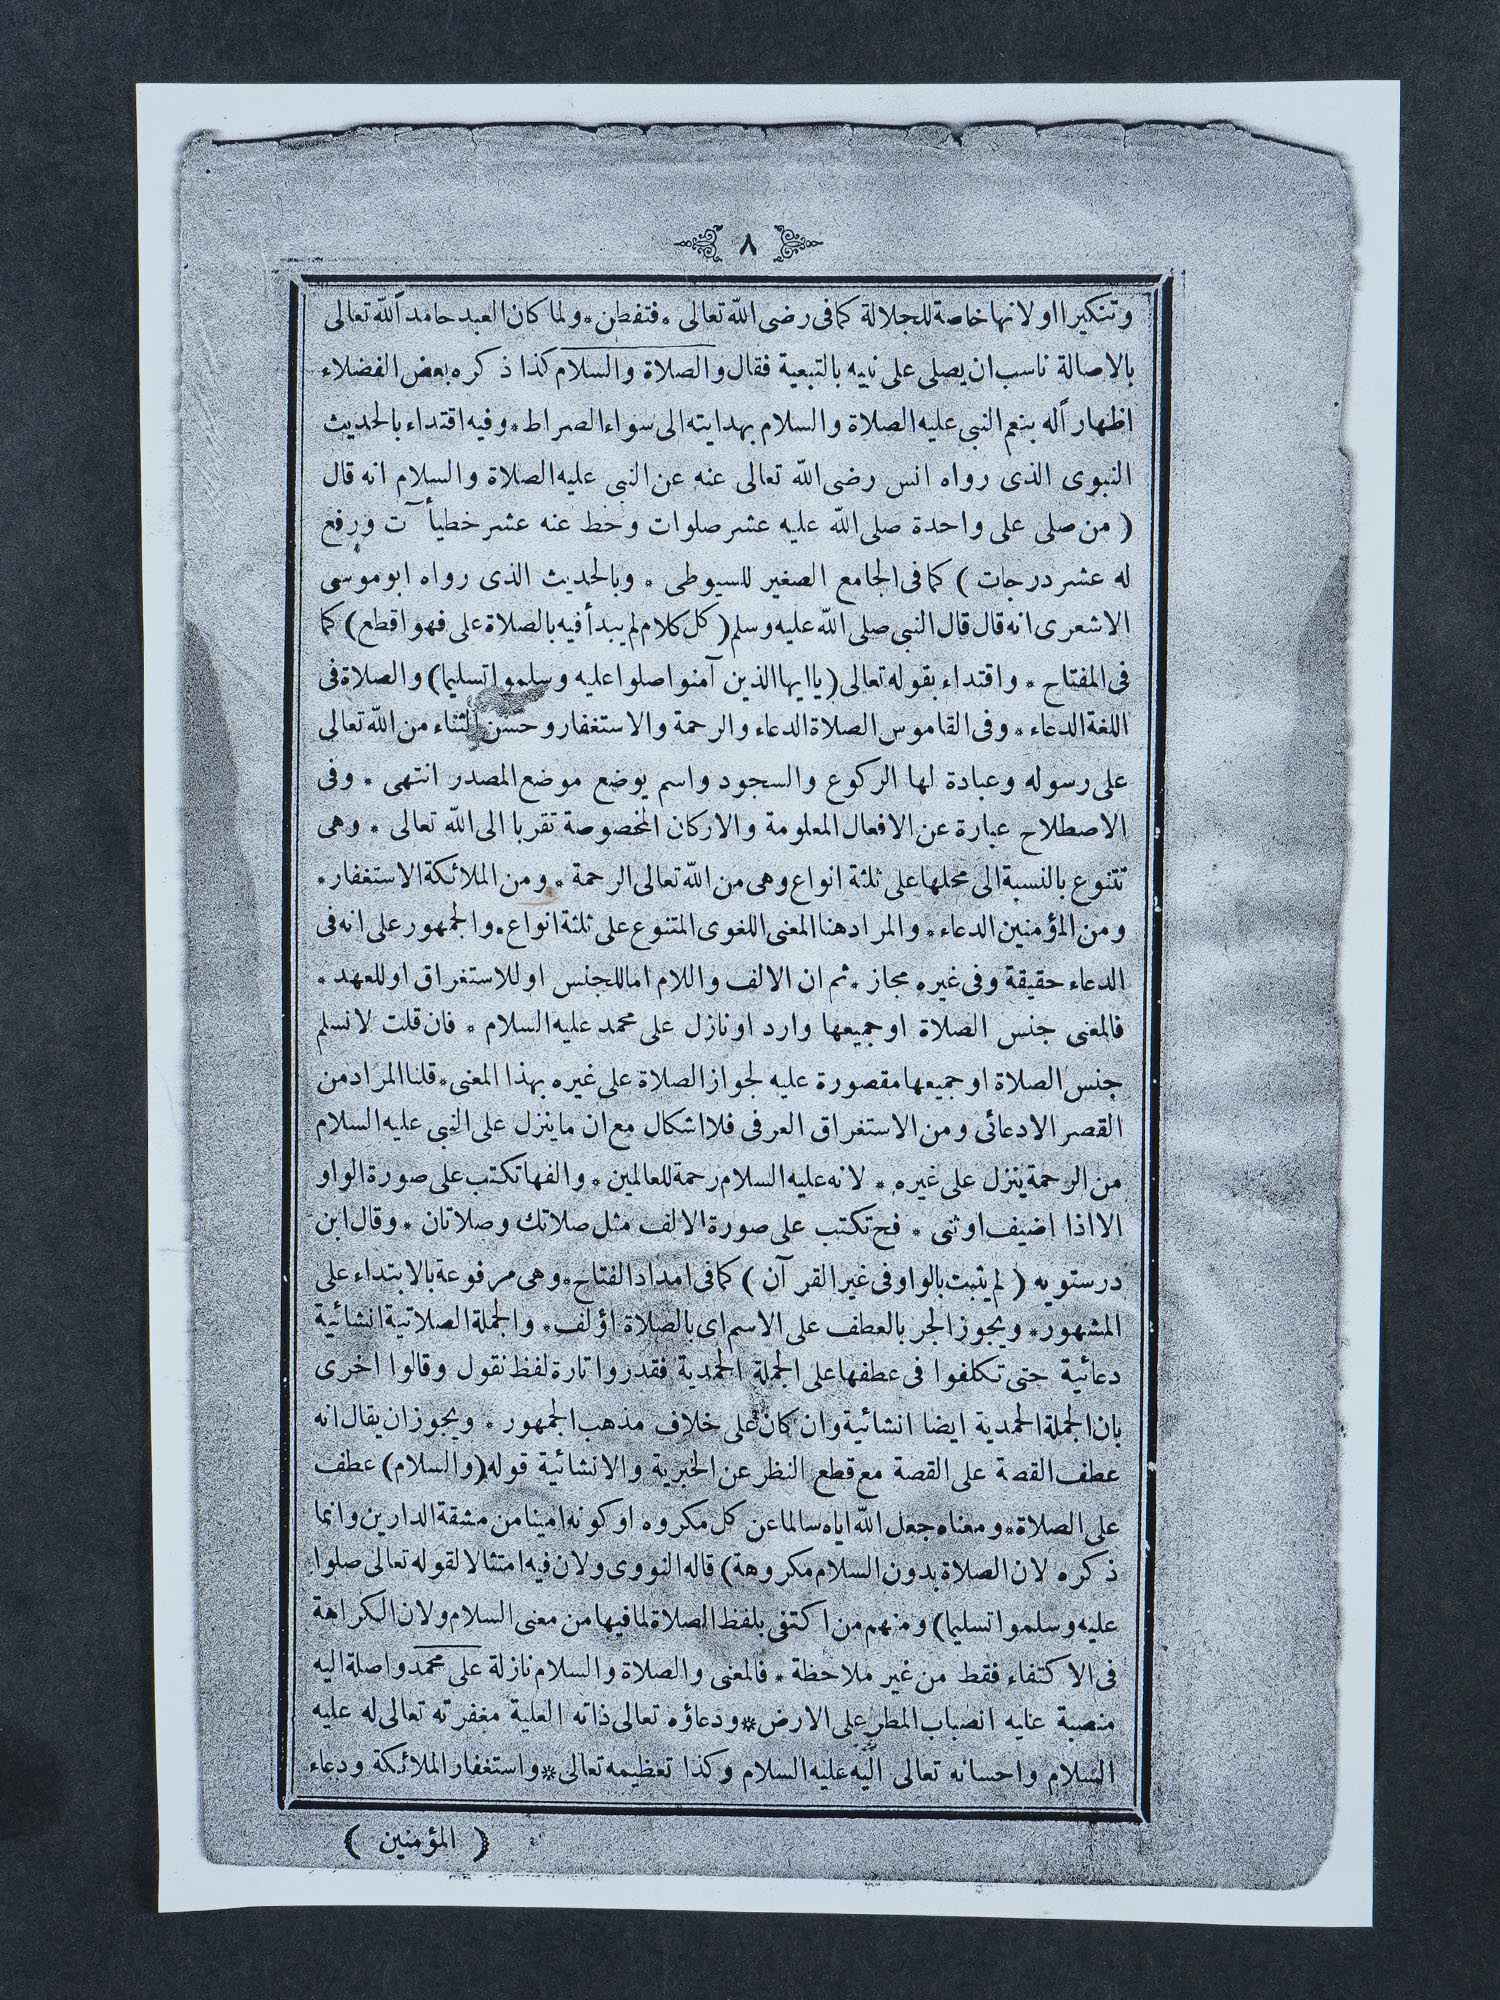 ٨
وتنكيرا اولانها خاصة للجلالة كما فى رضى الله تعالى * فتفطن * ولما كان العبد حامدا لله تعالى
بالاصالة ناسب ان يصلى على نبيه بالتبعية فقال والصلاة والسلام كذا ذكره بعض الفضلاء
اظهارا له بنعم النبى عليه الصلاة والسلام بهدايته الى سواء الصراط * وفيه اقتداء بالحديث
النبوى الذى رواه انس رضى الله تعالى عنه عن النبى عليه الصلاة والسلام انه قال
( من صلى على واحدة صلى الله عليه عشر صلوات وحط عنه عشر خطيأآت ورفع
له عشر درجات ) كما فى الجامع الصغير للسيوطى * وبالحديث الذى رواه ابو موسى
الاشعرى انه قال قال النبى صلى الله عليه وسلم ( كل كلام لم يبدأ فيه بالصلاة على فهو اقطع ) كما
فى المفتاح * واقتداء بقوله تعالى ( يا ايها الذين آمنوا صلوا عليه وسلموا تسليما ) والصلاة فى
اللغة الدعاء * وفى القاموس الصلاة الدعاء والرحمة والاستغفار وحسن الثناء من الله تعالى
على رسوله وعبادة لها الركوع والسجود واسم يوضع موضع المصدر انتهى * وفى
الاصطلاح عبارة عن الافعال المعلومة والاركان المخصوصة تقربا الى الله تعالى * وهى
تتنوع بالنسبة الى محلها على ثلثة انواع وهى من الله تعالى الرحمة * ومن الملائكة الاستغفار *
ومن المؤمنين الدعاء * والمراد هنا المعنى اللغوى المتنوع على ثلثة انواع * والجمهور على انه فى
الدعاء حقيقة وفى غيره مجاز * ثم ان الالف واللام اما للجنس او للاستغراق او للعهد *
فالمعنى جنس الصلاة او جميعها وارد او نازل على محمد عليه السلام * فان قلت لا نسلم
جنس الصلاة او جميعها مقصورة عليه لجواز الصلاة على غيره بهذا المعنى * قلنا المراد من
القصر الادعائى ومن الاستغراق العرفى فلا اشكال مع ان ما ينزل على النبى عليه السلام
من الرحمة ينزل على غيره * لانه عليه السلام رحمة للعالمين * والفها تكتب على صورة الواو
الا اذا اضيف او ثنى * فح تكتب على صورة الالف مثل صلاتك وصلاتان * وقال ابن
درستويه ( لم يثبت بالواو فى غير القرآن ) كما فى امداد الفتاح * وهى مرفوعة بالابتداء على
المشهور * ويجوز الجر بالعطف على الاسم اى بالصلاة اؤلف * والجملة الصلاتية انشائية
دعائية حتى تكلفوا فى عطفها على الجملة الحمدية فقدروا تارة لفظ نقول وقالوا اخرى
بان الجملة الحمدية ايضا انشائية وان كان على خلاف مذهب الجمهور * ويجوز ان يقال انه
عطف القصة على القصة مع قطع النظر عن الخبرية والانشائية قوله ( والسلام ) عطف
على الصلاة * ومعناه جعل الله اياه سالما عن كل مكروه او كونه امينا من مشقة الدارين وانما
ذكره لان الصلاة بدون السلام مكروهة ) قاله النووى ولان فيه امتثالا لقوله تعالى صلوا
عليه وسلموا تسليما ) ومنهم من اكتفى بلفظ الصلاة لما فيها من معنى السلام ولان الكراهة
فى الاكتفاء فقط من غير ملاحظة * فالمعنى والصلاة والسلام نازلة على محمد واصلة اليه
منصبة عليه انصباب المطر على الارض * ودعاؤه تعالى ذاته العلية مغفرته تعالى له عليه
السلام واحسانه تعالى اليه عليه السلام وكذا تعظيمه تعالى * واستغفار الملائكة ودعاء
( المؤمنين )